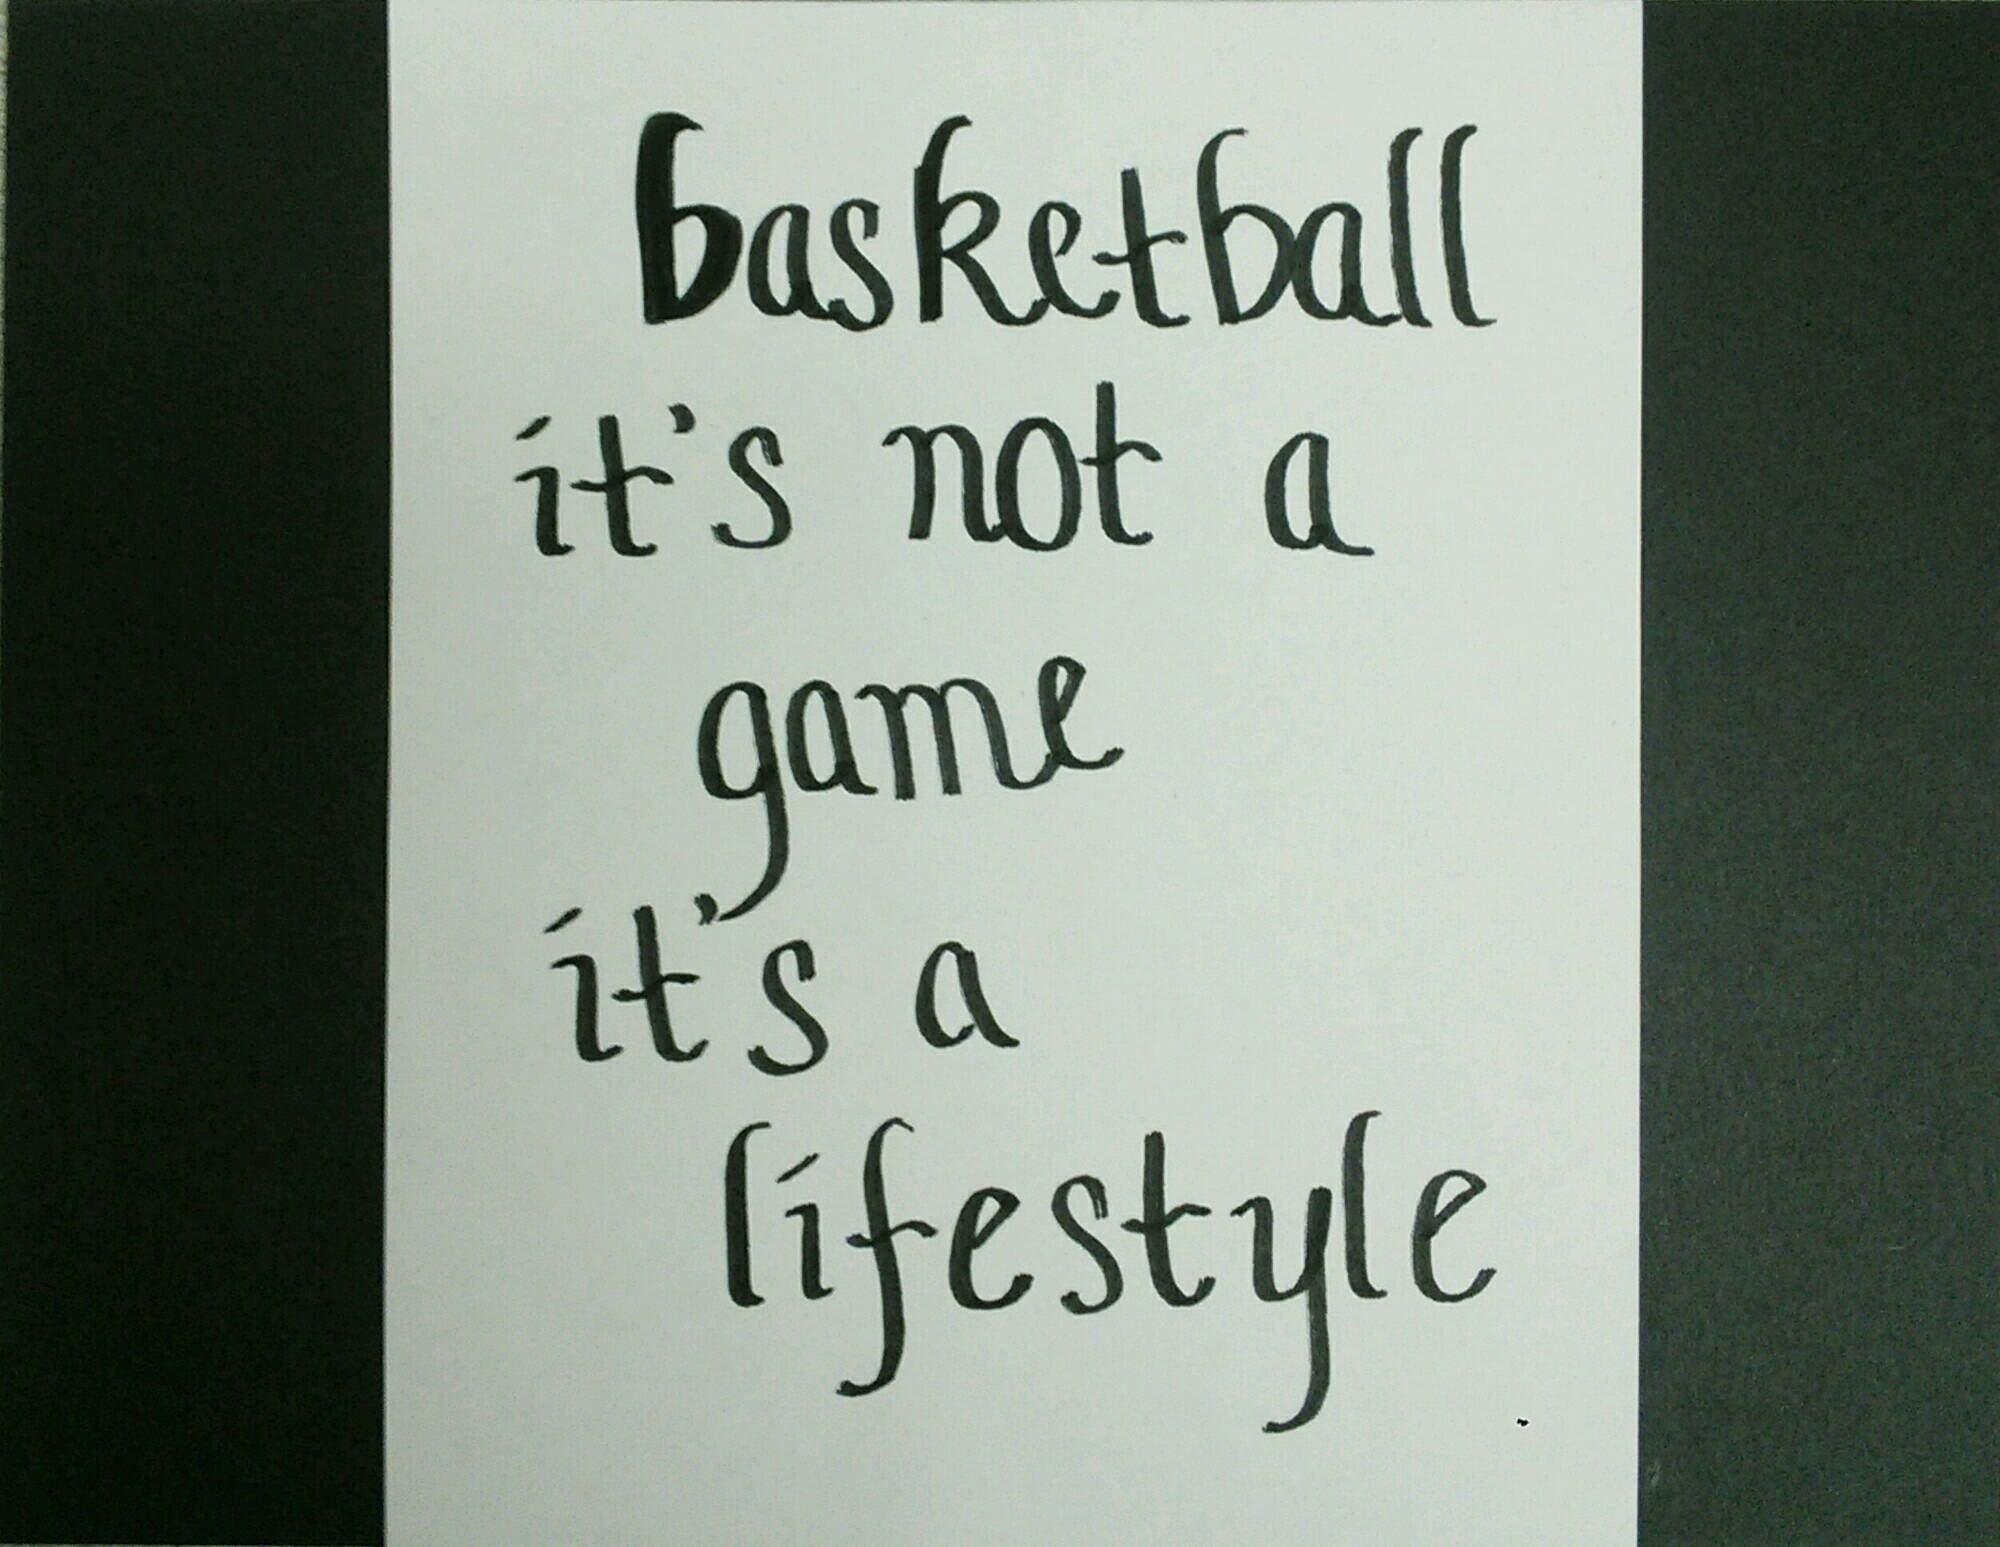 basketball
it's not a
game
it's a
lifestyle